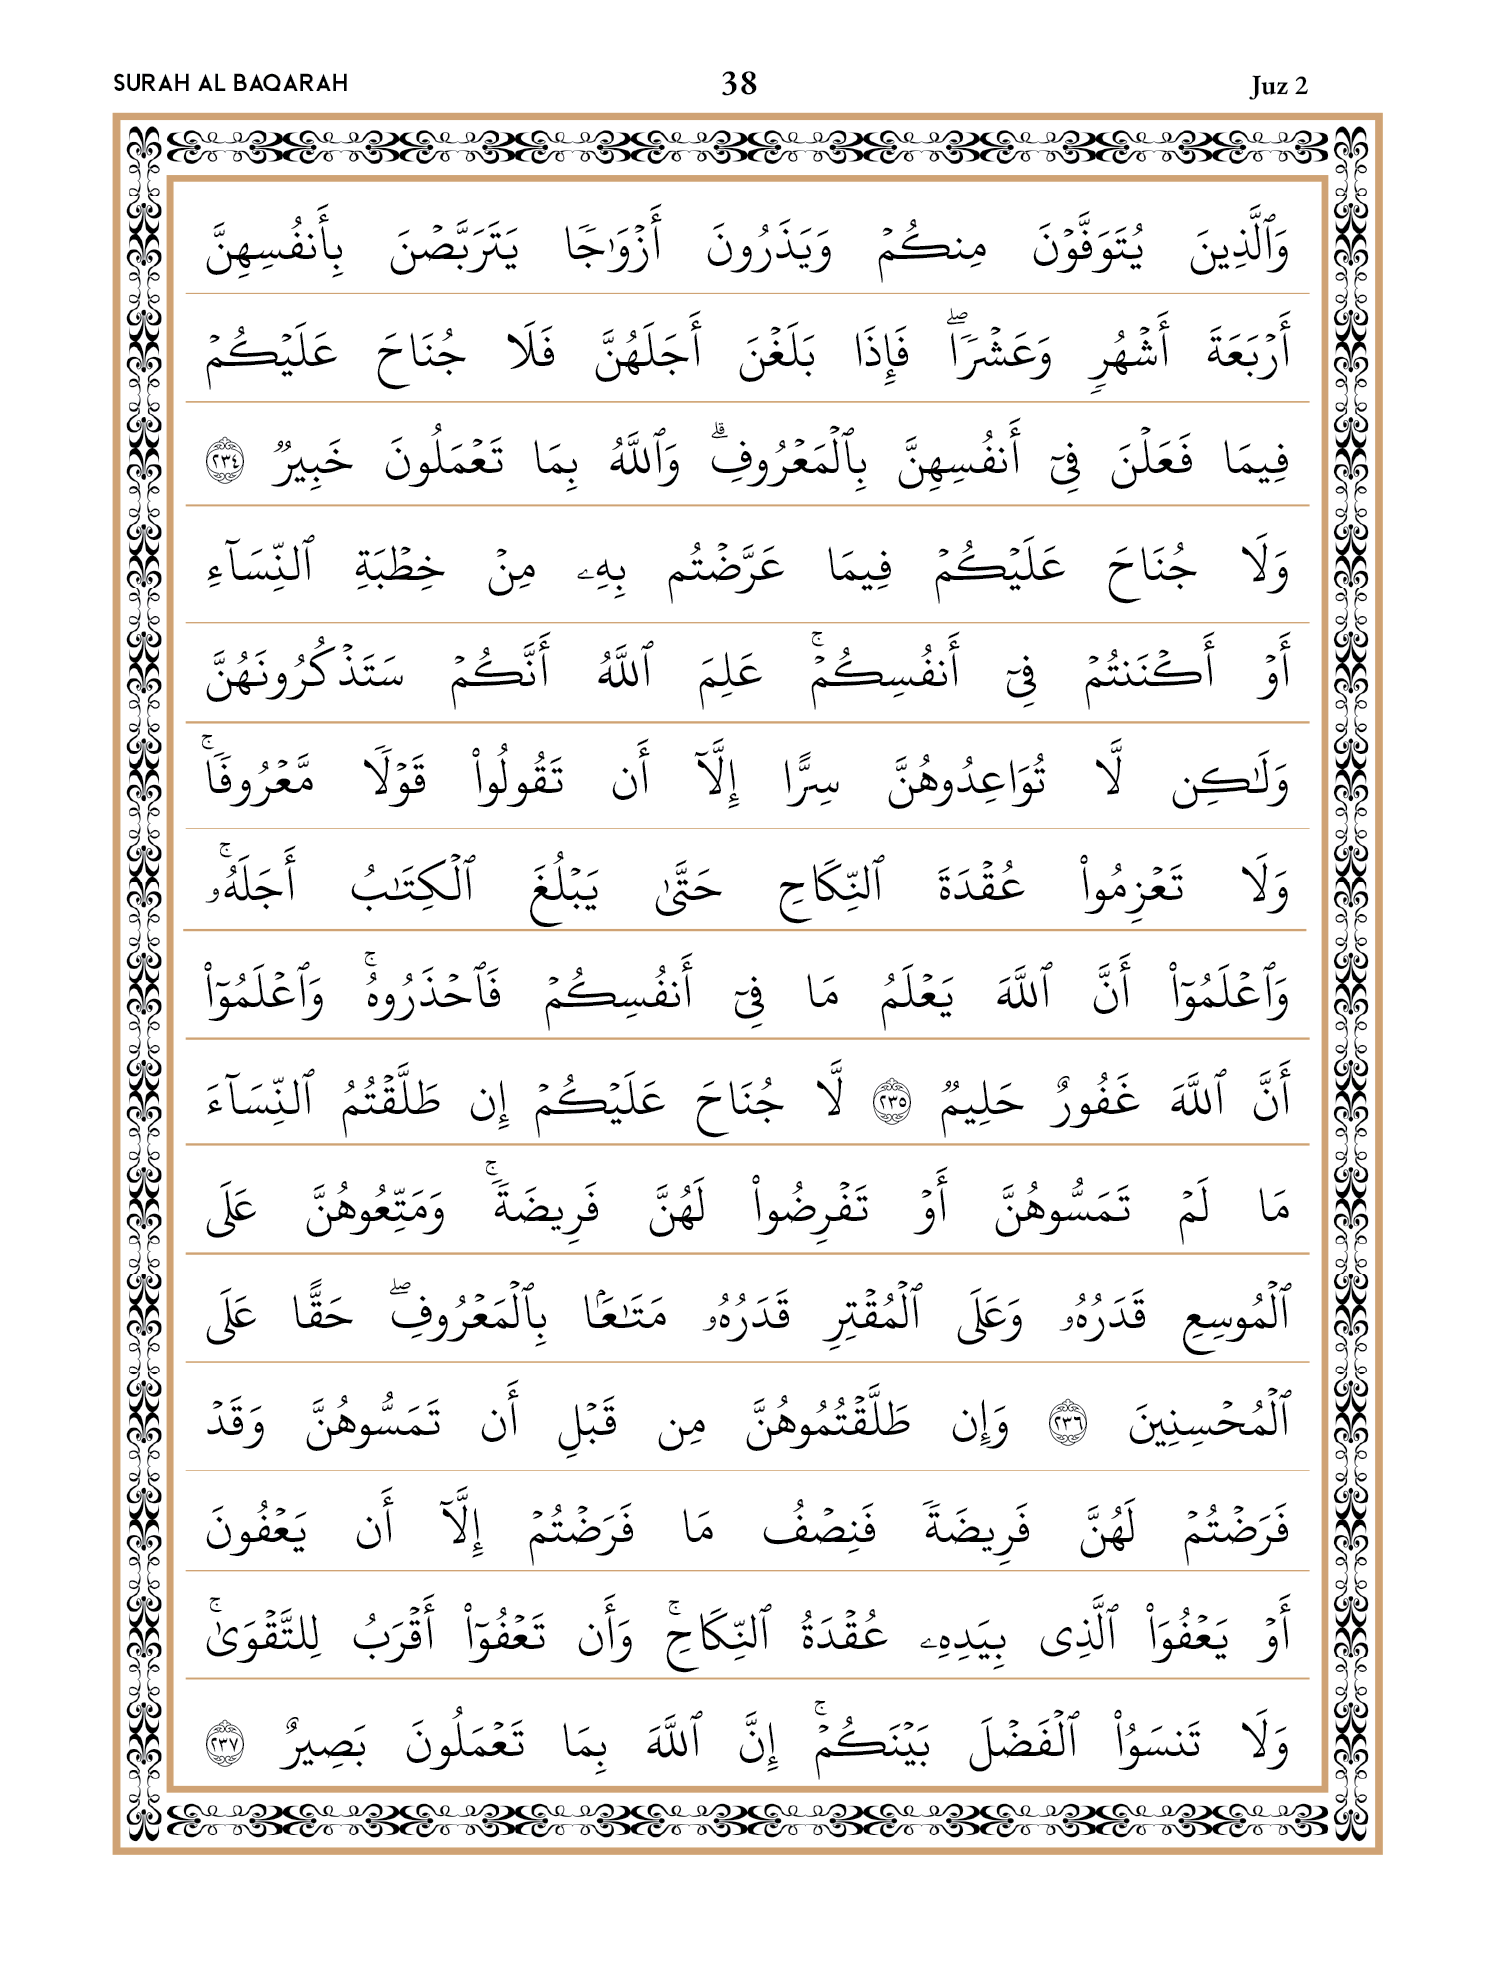 SURAH AL BAQARAH 38 Juz 2
وَٱلَّذِينَ يُتَوَفَّوۡنَ مِنكُمۡ وَيَذَرُونَ أَزۡوَٰجٗا يَتَرَبَّصۡنَ بِأَنفُسِهِنَّ
أَرۡبَعَةَ أَشۡهُرٖ وَعَشۡرٗاۖ فَإِذَا بَلَغۡنَ أَجَلَهُنَّ فَلَا جُنَاحَ عَلَيۡكُمۡ
فِيمَا فَعَلۡنَ فِيٓ أَنفُسِهِنَّ بِٱلۡمَعۡرُوفِۗ وَٱللَّهُ بِمَا تَعۡمَلُونَ خَبِيرٞ ٢٣٤
وَلَا جُنَاحَ عَلَيۡكُمۡ فِيمَا عَرَّضۡتُم بِهِۦ مِنۡ خِطۡبَةِ ٱلنِّسَآءِ
أَوۡ أَكۡنَنتُمۡ فِيٓ أَنفُسِكُمۡۚ عَلِمَ ٱللَّهُ أَنَّكُمۡ سَتَذۡكُرُونَهُنَّ
وَلَٰكِن لَّا تُوَاعِدُوهُنَّ سِرًّا إِلَّآ أَن تَقُولُواْ قَوۡلٗا مَّعۡرُوفٗاۚ
وَلَا تَعۡزِمُواْ عُقۡدَةَ ٱلنِّكَاحِ حَتَّىٰ يَبۡلُغَ ٱلۡكِتَٰبُ أَجَلَهُۥۚ
وَٱعۡلَمُوٓاْ أَنَّ ٱللَّهَ يَعۡلَمُ مَا فِيٓ أَنفُسِكُمۡ فَٱحۡذَرُوهُۚ وَٱعۡلَمُوٓاْ
أَنَّ ٱللَّهَ غَفُورٌ حَلِيمٞ ٢٣٥ لَّا جُنَاحَ عَلَيۡكُمۡ إِن طَلَّقۡتُمُ ٱلنِّسَآءَ
مَا لَمۡ تَمَسُّوهُنَّ أَوۡ تَفۡرِضُواْ لَهُنَّ فَرِيضَةٗۚ وَمَتِّعُوهُنَّ عَلَى
ٱلۡمُوسِعِ قَدَرُهُۥ وَعَلَى ٱلۡمُقۡتِرِ قَدَرُهُۥ مَتَٰعَۢا بِٱلۡمَعۡرُوفِۖ حَقًّا عَلَى
ٱلۡمُحۡسِنِينَ ٢٣٦ وَإِن طَلَّقۡتُمُوهُنَّ مِن قَبۡلِ أَن تَمَسُّوهُنَّ وَقَدۡ
فَرَضۡتُمۡ لَهُنَّ فَرِيضَةٗ فَنِصۡفُ مَا فَرَضۡتُمۡ إِلَّآ أَن يَعۡفُونَ
أَوۡ يَعۡفُوَاْ ٱلَّذِي بِيَدِهِۦ عُقۡدَةُ ٱلنِّكَاحِۚ وَأَن تَعۡفُوٓاْ أَقۡرَبُ لِلتَّقۡوَىٰۚ
وَلَا تَنسَوُاْ ٱلۡفَضۡلَ بَيۡنَكُمۡۚ إِنَّ ٱللَّهَ بِمَا تَعۡمَلُونَ بَصِيرٌ ٢٣٧